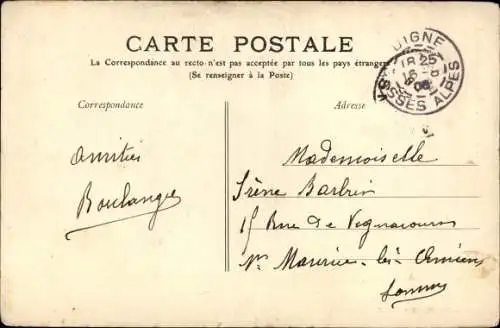 CARTE POSTALE
La Correspondance au recto n'est pas acceptée par tous les pays étrangers
(Se renseigner à la Poste)
Correspondance
Adresse
DIGNE
18 25
06
BSSES ALPES
Amitiés
Boulanger
Mademoiselle
Irène Barbier
15 Rue de Vignacourt
St Maurice-les-Amiens
Somme